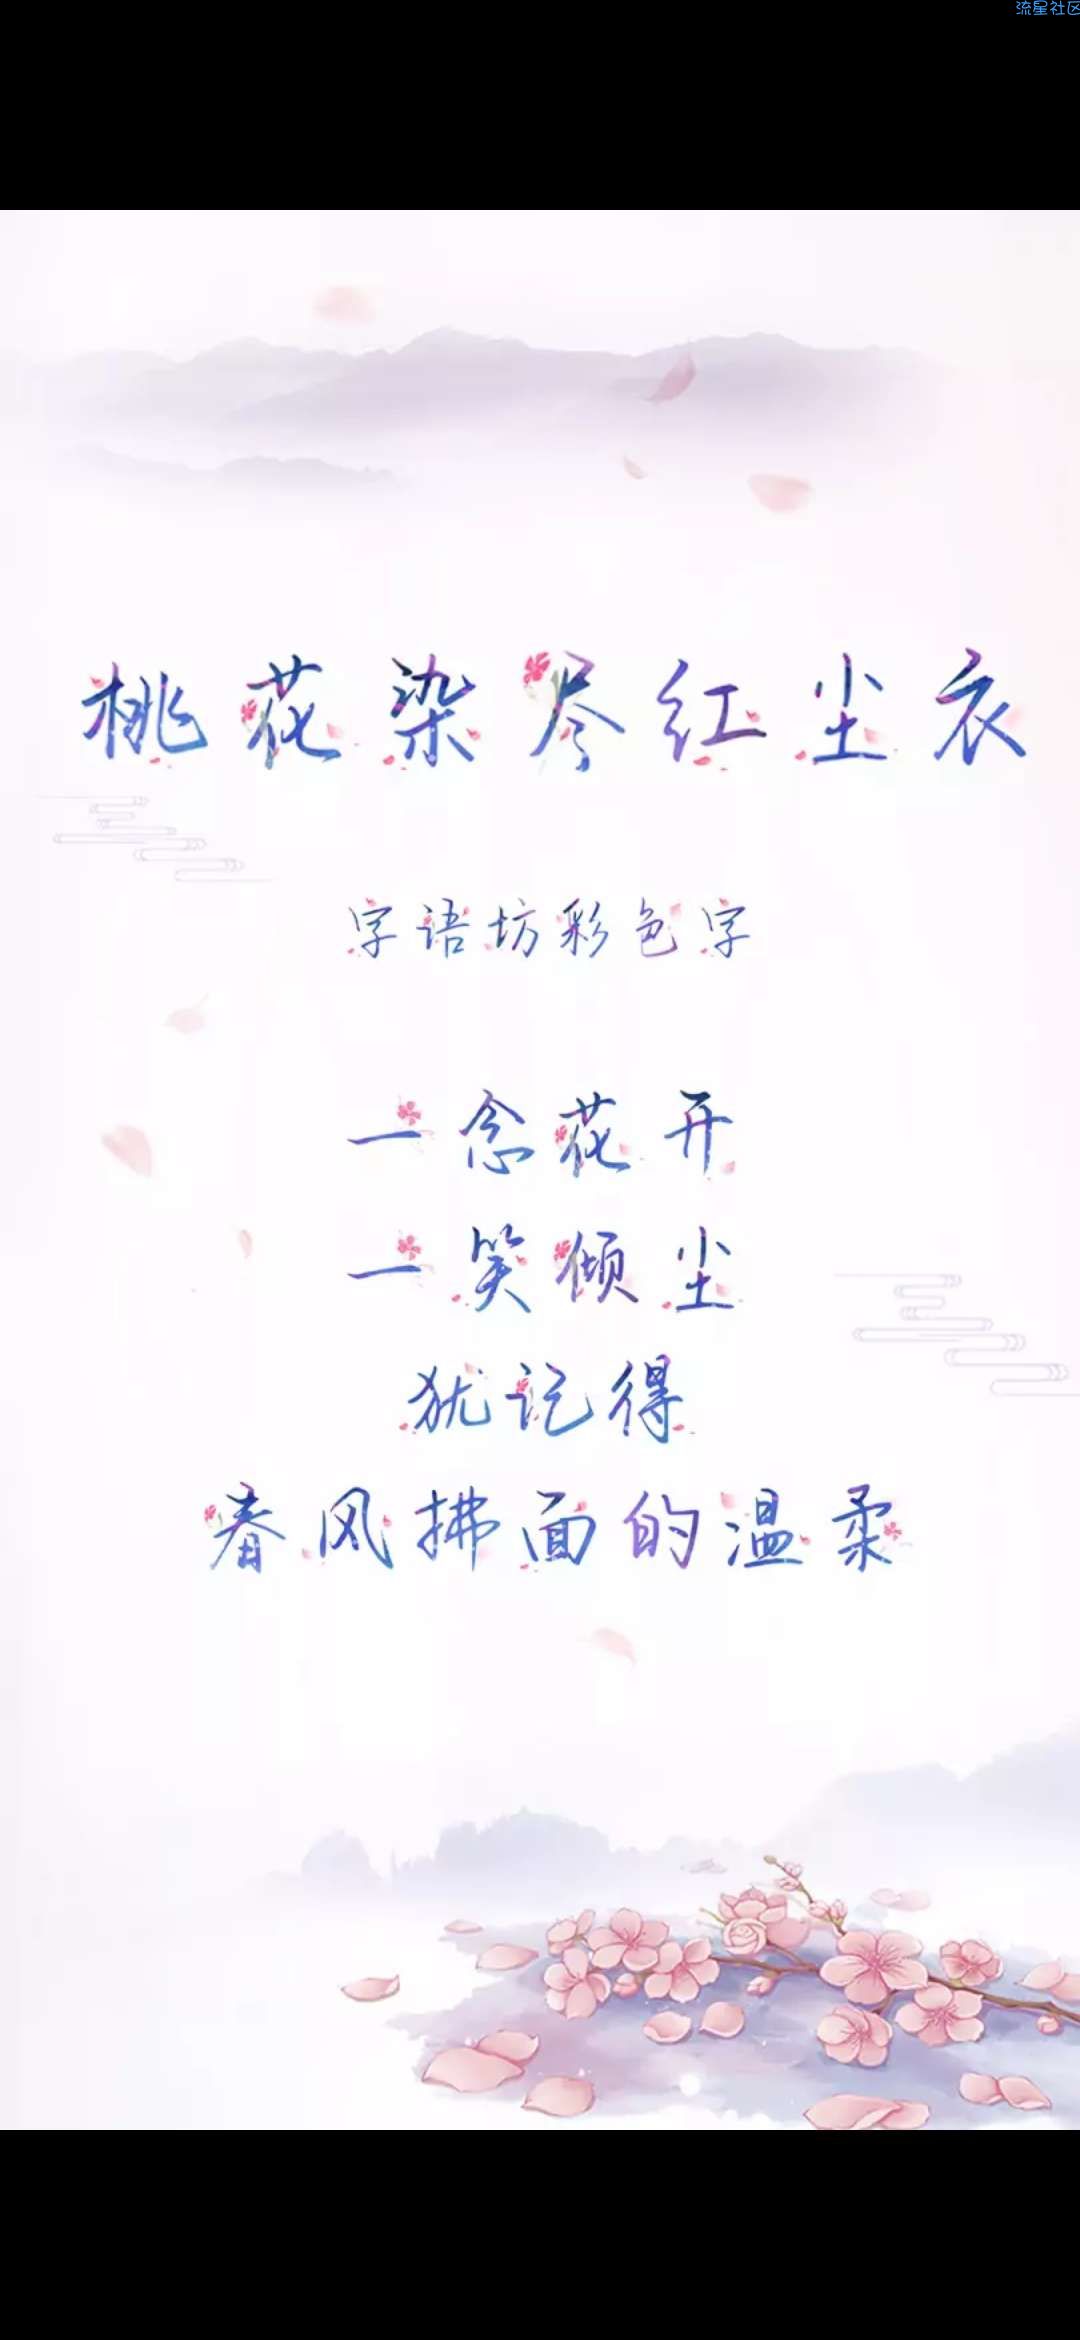 流星社区
桃花染尽红尘衣
字语坊彩色字
一念花开
一笑倾尘
犹记得
春风拂面的温柔